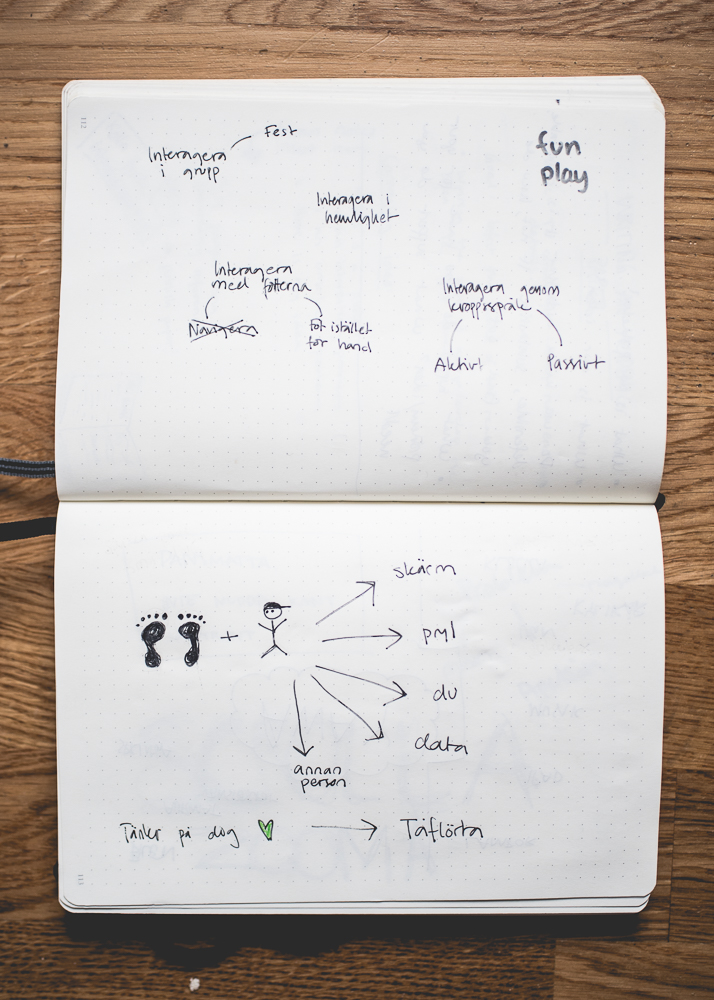 112
Fest
Interagera
i grupp
fun
play
Interagera i
hemlighet
Interagera
med fötterna
Navigera
Fot istället
för hand
Interagera genom
kroppsspråk
Aktivt
Passivt
skärm
+
pryl
du
data
annan
person
Tänker på dig
Tåflörta
113